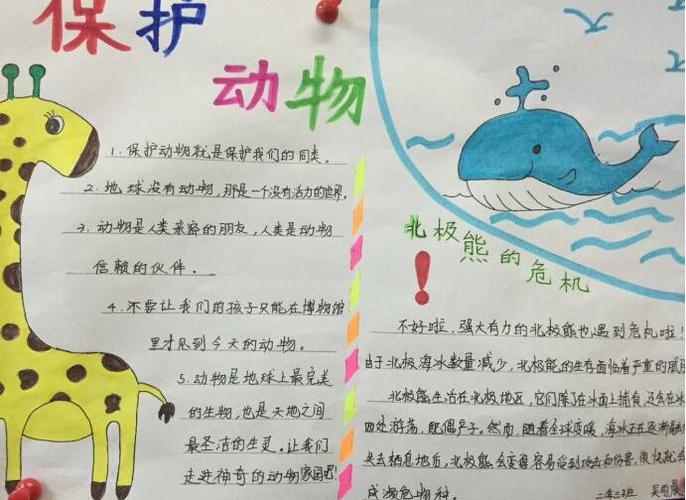 保护
动物
1. 保护动物就是保护我们的同类。
2. 地球没有动物，那是一个没有活力的世界。
3. 动物是人类亲密的朋友，人类是动物
信赖的伙伴。
4. 不要让我们的孩子只能在博物馆
里才见到今天的动物。
5. 动物是地球上最完美
的生物，也是天地之间
最圣洁的生灵。让我们
走进神奇的动物家园吧！
北极熊的危机！
不好啦，强大有力的北极熊也遇到危机啦！
由于北极海冰数量减少，北极熊的生存面临着严重的威
北极熊生活在北极地区，它们除了在冰面上捕食，还会在冰
四处游荡，配偶产子。然而，随着全球变暖，海冰正在逐渐融
失去栖息地后，北极熊会变得容易受到攻击和伤害，很快就会
成濒危物种。